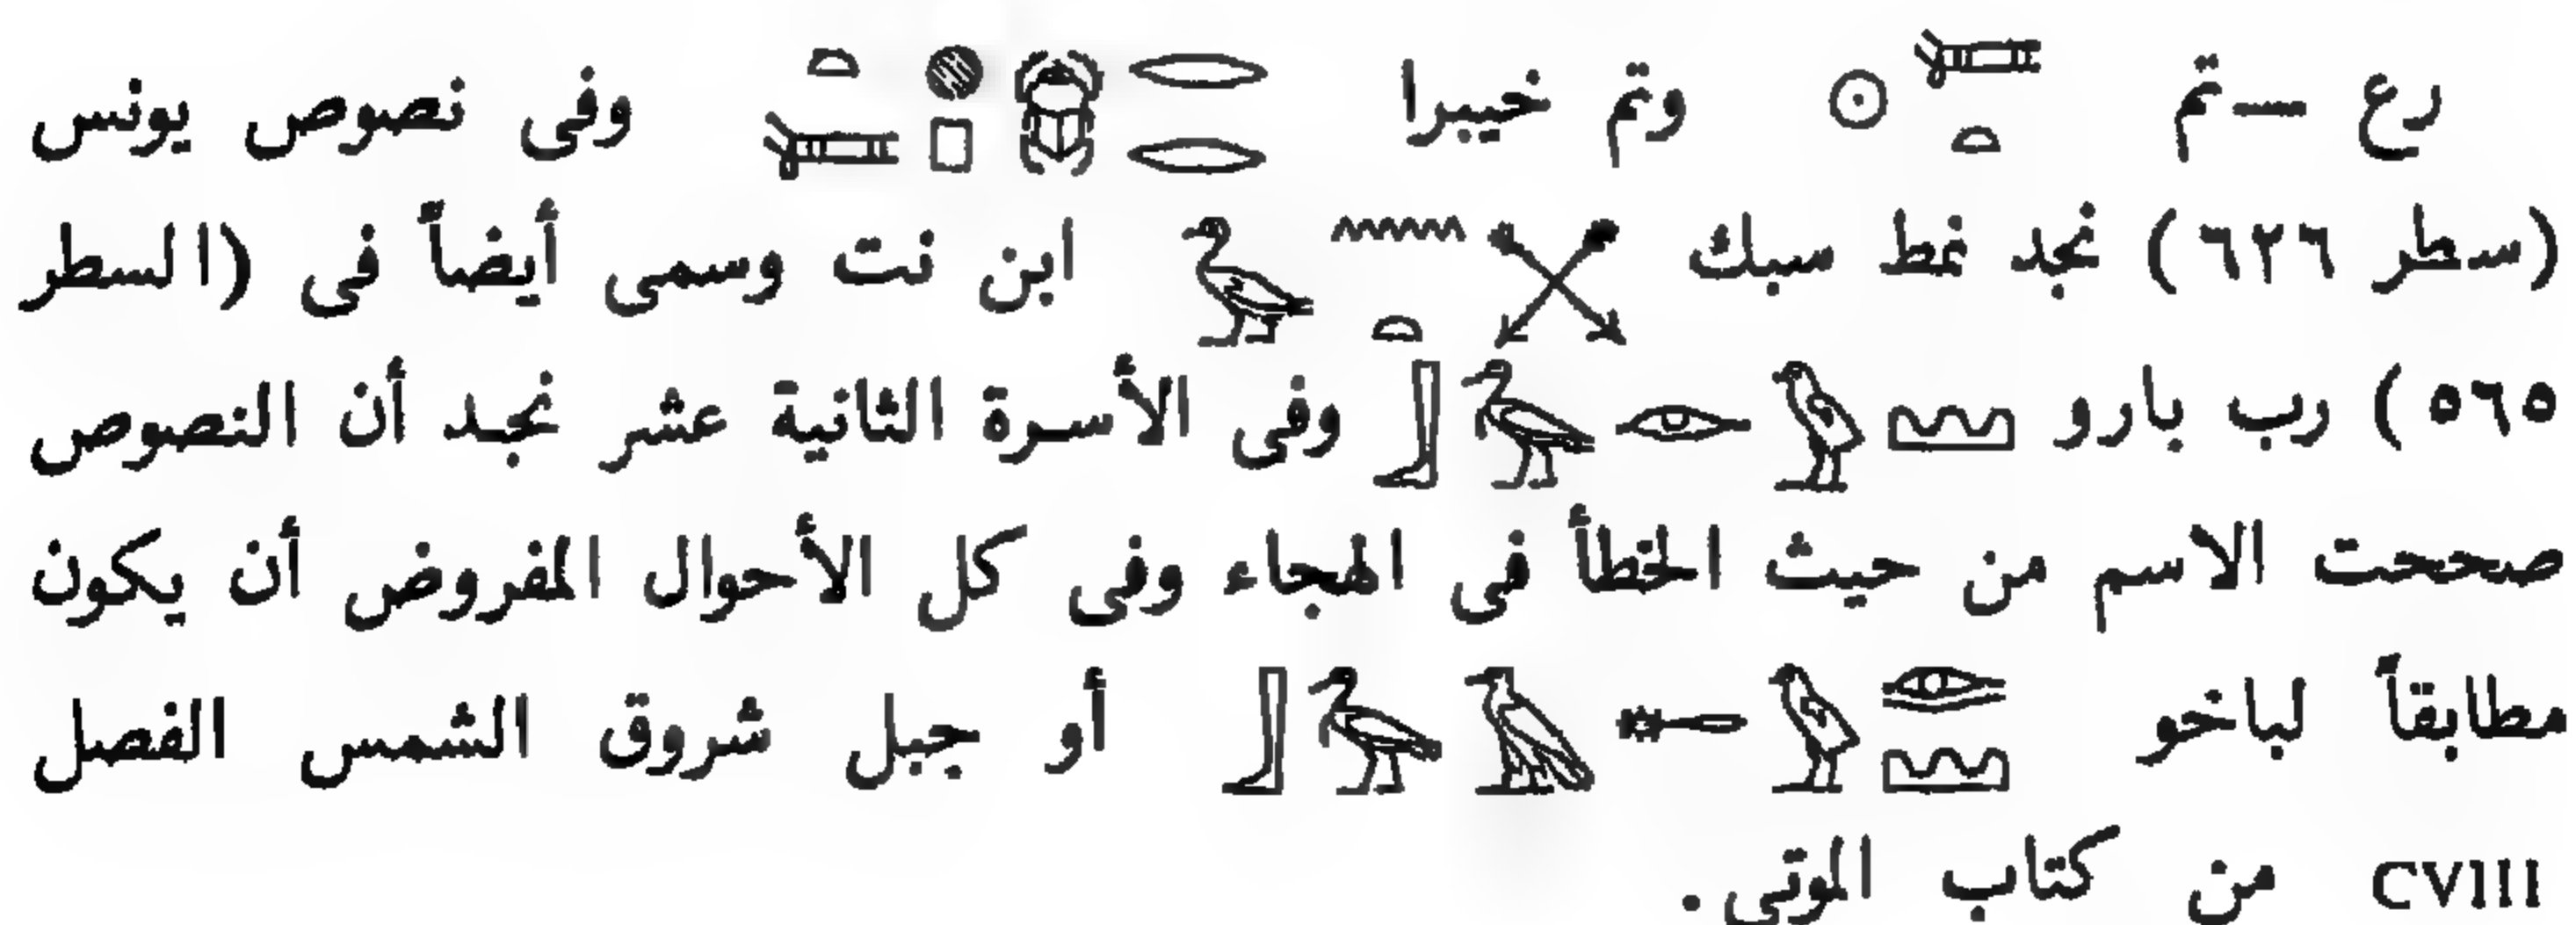 رع — تم 𓇳𓍃𓏏 وتم خيبرا 𓏏𓍃𓐍𓊪𓆣𓂋𓂋 وفى نصوص يونس
(سطر ٦٢٦) نجد نمط سبك 𓅭𓈖𓏏𓋋 ابن نت وسمى أيضاً فى (السطر
٥٦٥) رب بارو 𓃀𓅡𓁹𓅱𓈋 وفى الأسرة الثانية عشر نجد أن النصوص
صححت الاسم من حيث الخطأ فى الهجاء وفى كل الأحوال المفروض أن يكون
مطابقاً لباخو 𓃀𓅡𓄿𓎛𓅱𓁹𓈋 أو جبل شروق الشمس الفصل
CVIII من كتاب الموتى .